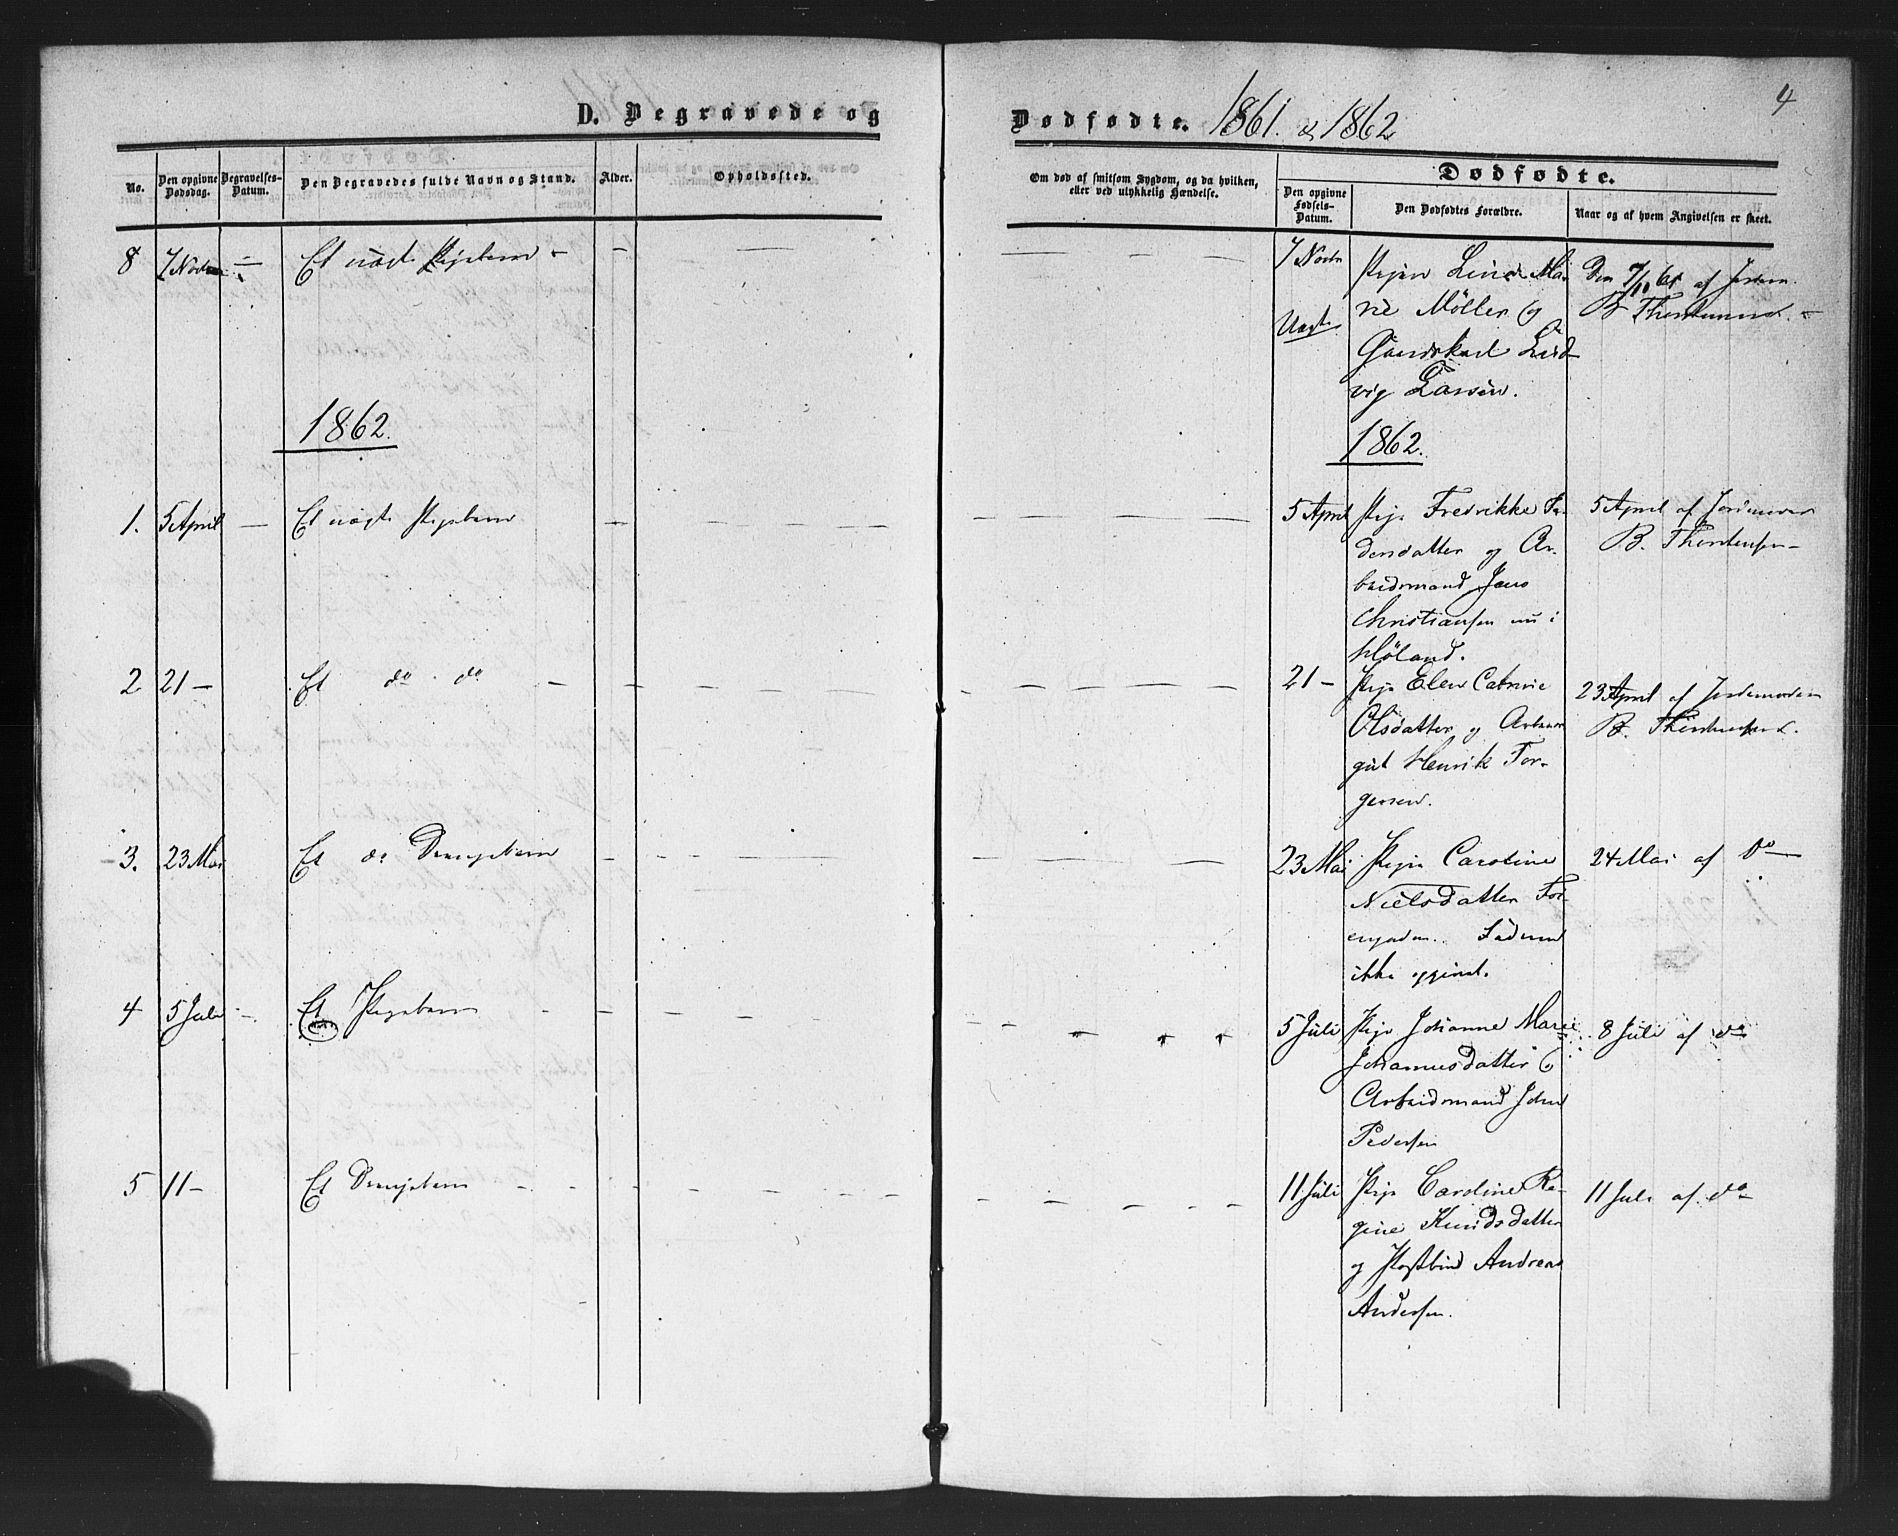 D. Begravede og
Dødfødte. 1861. & 1862
4
No.
Den opgivne Dødsdag.
Begravelses-Datum.
Den Begravedes fulde Navn og Stand.
Alder.
Opholdssted.
Om død af smitsom Sygdom, og da hvilken,
eller ved ulykkelig Hændelse.
Dødfødte.
Den opgivne Fødsels-Datum.
Den Dødfødtes Forældre.
Naar og af hvem Angivelsen er skeet.
8 7 Novbr — Et uægte Pigebarn – –
7 Novbr
Uægte
Pigen Line Ma-
rie Møller og
Gaardskarl Lud-
vig Larsen.
Den 7/11 61 af Jordm.
B Thorstensen. –
1862.
1862.
1. 5 April — Et uægte Pigebarn
5 April Pige Fredrikke
densdatter og Ar-
beidsmand Jens
Christiansen nu i
Høland.
5 April af Jordemoder
B. Thorstensen –
2 21 – Et do do
21 – Pige Elen Catrine
Olsdatter og
gut Henrik Tor-
gersen.
23 April af Jordemoderen
B. Thorstensen.
3. 23 Mai Et do Drengebarn
23 Mai Pige Caroline
Nielsdatter
Faderen
ikke opgivet.
24 Mai af do
4 5 Juli –. Et Pigebarn
5 Juli Pige Johanne Marie
Johannesdatter &
Arbeidsmand John
Pedersen
8 Juli af do
5 11 – Et Drengebarn
11 Juli Pige Caroline Ra-
gine Knudsdatter
og Postbud Andreas
Andersen.
11 Juli af do